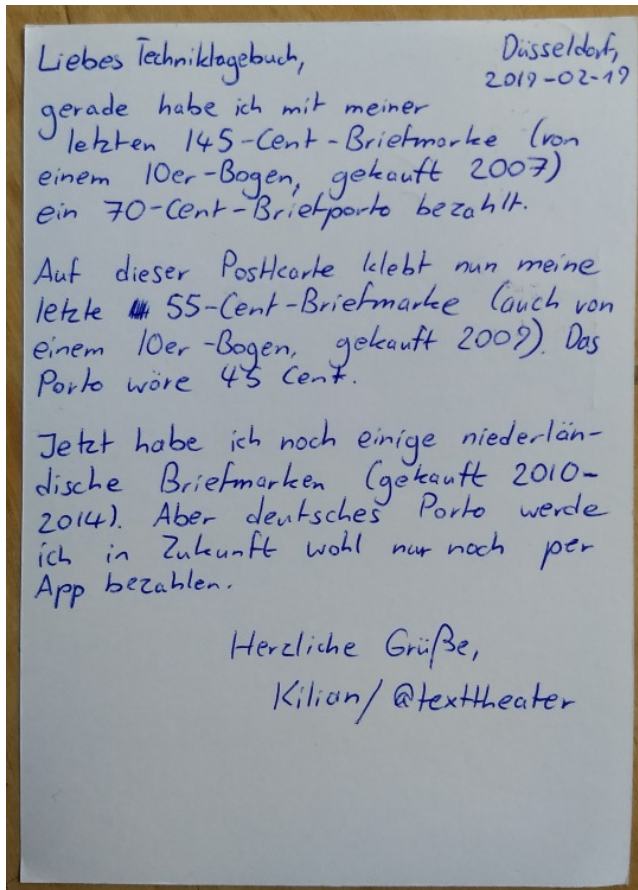 Liebes Techniktagebuch,
Düsseldorf,
2019-02-19
gerade habe ich mit meiner
letzten 145-Cent-Briefmarke (von
einem 10er-Bogen, gekauft 2007)
ein 70-Cent-Briefporto bezahlt.
Auf dieser Postkarte klebt nun meine
letzte 55-Cent-Briefmarke (auch von
einem 10er-Bogen, gekauft 2009). Das
Porto wäre 45 Cent.
Jetzt habe ich noch einige niederlän-
dische Briefmarken (gekauft 2010-
2014). Aber deutsches Porto werde
ich in Zukunft wohl nur noch per
App bezahlen.
Herzliche Grüße,
Kilian/@texttheater